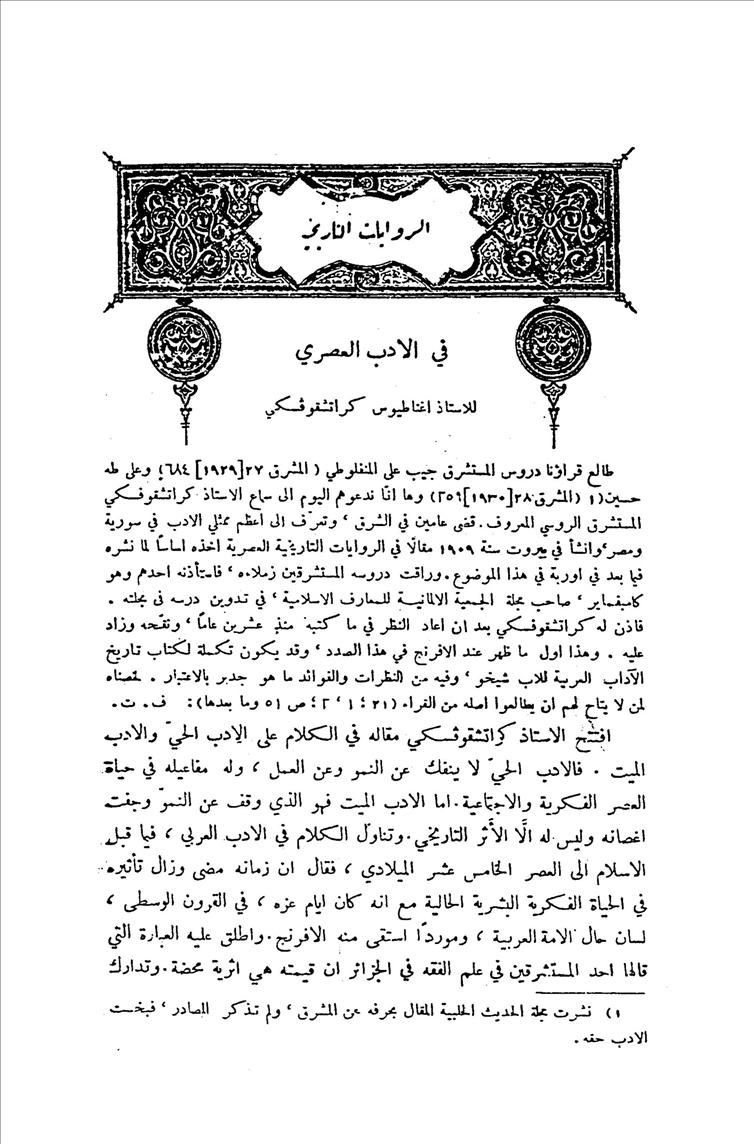 الروايات التاريخية
في الادب العصري
للاستاذ اغناطيوس كراتشقوڤسكي
طالع قراؤنا دروس المستشرق جيب على المنفلوطي ( المشرق ٢٧[١٩٢٩] ٦٨٤) وعلى طه
حسين(١ (المشرق٢٨[١٩٣٠]٣٥٩) وها انّا ندعوهم اليوم الى سماع الاستاذ كراتشقوڤسكي
المستشرق الروسي المعروف. قضى عامين في الشرق ، وتعرّف الى اعظم ممثلي الادب في سورية
ومصر،وانشأ في بيروت سنة ١٩٠٩ مقالًا في الروايات التاريخية العصرية اخذه اساسًا لما نشره
فيما بعد في اوربة في هذا الموضوع. وراقت دروسه المستشرقين زملاءه ، فاستأذنه احدهم وهو
كامبفماير ، صاحب مجلة الجمعية الالمانية للمعارف الاسلامية ، في تدوين درسه في مجلته .
فاذن له كراتشقوڤسكي بعد ان اعاد النظر في ما كتبه منذ عشرين عامًا ، ونقّحه وزاد
عليه . وهذا اول ما ظهر عند الافرنج في هذا الصدد ، وقد يكون تكملة لكتاب تاريخ
الآداب العربية للاب شيخو ، وفيه من النظرات والفوائد ما هو جدير بالاعتبار . لخصناه
لمن لا يتاح لهم ان يطالعوا اصله من القراء (٢١ ؛ ١ ، ٢ ؛ ص ٥١ وما بعدها): ف. ت.
افتتح الاستاذ كراتشقوڤسكي مقاله في الكلام على الادب الحيّ والادب
الميت . فالادب الحيّ لا ينفك عن النمو وعن العمل ، وله مفاعيله في حياة
العصر الفكرية والاجتماعية. اما الادب الميت فهو الذي وقف عن النموّ وجفت
اغصانه وليس له الَّا الأَثر التاريخي. وتناول الكلام في الادب العربي ، فيما قبل
الاسلام الى العصر الخامس عشر الميلادي ، فقال ان زمانه مضى وزال تأثيره
في الحياة الفكرية البشرية الحالية مع انه كان ايام عزه ، في القرون الوسطى ،
لسان حال الامة العربية ، وموردًا استقى منه الافرنج. واطلق عليه العبارة التي
قالها احد المستشرقين في علم الفقه في الجزائر ان قيمته هي اثرية محضة. وتدارك
١) نشرت مجلة الحديث الحلبية المقال بحرفه عن المشرق ، ولم تذكر المصادر ، فبخست
الادب حقه .